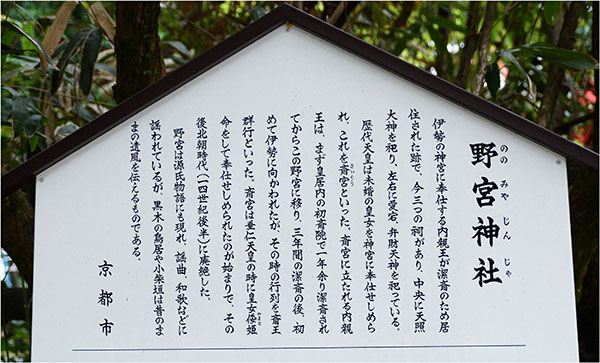 野宮神社
ののみやじんじゃ
伊勢の神宮に奉仕する内親王が潔斎のため居
住された跡で、今三つの祠があり、中央に天照
大神を祀り、左右に愛宕、弁財天神を祀っている。
歴代天皇は未婚の皇女を神宮に奉仕せしめら
れ、これを斎宮といった。斎宮に立たれる内親
さいぐう
王は、まず皇居内の初斎院で一年余り潔斎され
てからこの野宮に移り、三年間の潔斎の後、初
めて伊勢に向かわれたが、その時の行列を斎王
群行といった。斎宮は垂仁天皇の時に皇女倭姫
やまと
命をして奉仕せしめられたのが始まりで、その
後北朝時代(一四世紀後半)に廃絶した。
野宮は源氏物語にも現れ、謡曲、和歌などに
謡われているが、黒木の鳥居や小柴垣は昔のま
まの遺風を伝えるものである。
京都市